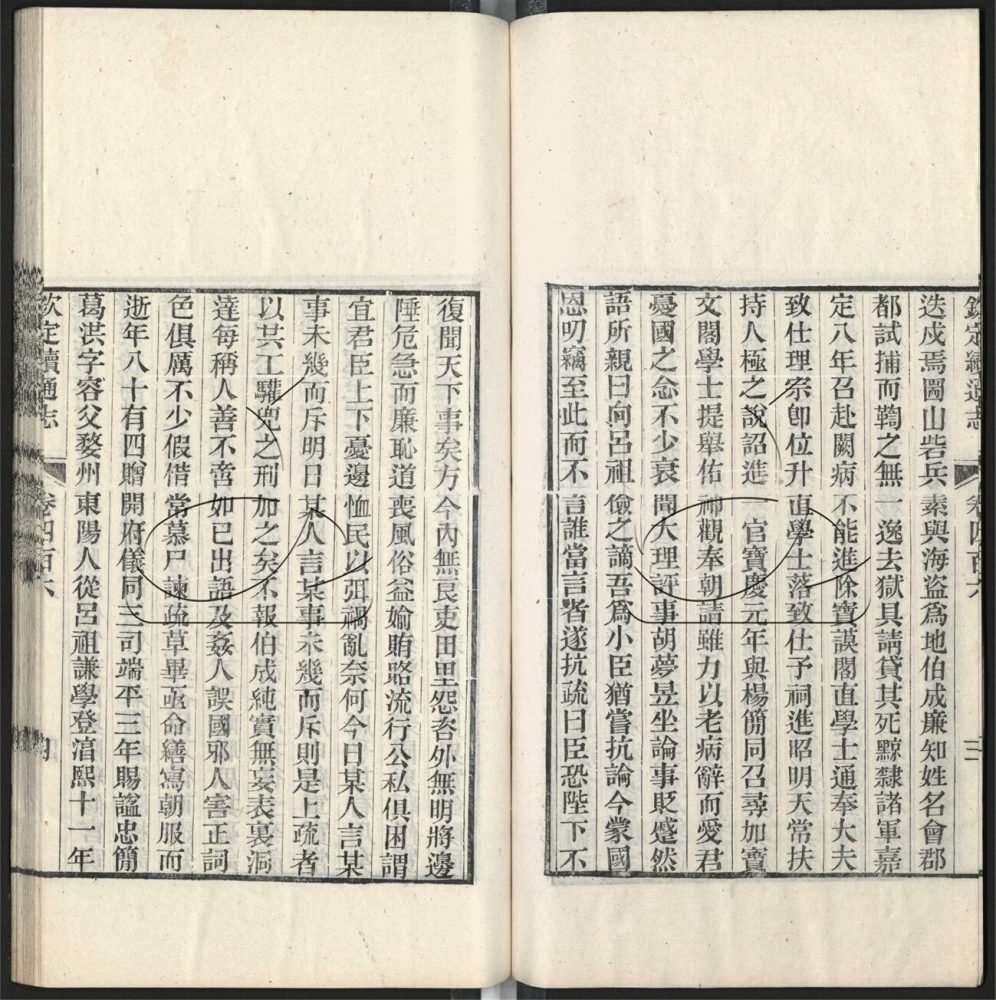 欽定續通志 卷四百六 三
迭戍焉圖山砦兵素與海盜爲地伯成廉知姓名會郡
都試捕而鞫之無一逸去獄具請貸其死黥隸諸軍嘉
定八年召赴闕病不能進除寶謨閣直學士通奉大夫
致仕理宗卽位升直學士落致仕予祠進昭明天常扶
持人極之說詔進一官寶慶元年與楊簡同召尋加寶
文閣學士提舉佑神觀奉朝請雖力以老病辭而愛君
憂國之念不少衰聞大理評事胡夢昱坐論事貶蹙然
語所親曰向呂祖儉之謫吾爲小臣猶嘗抗論今蒙國
恩叨竊至此而不言誰當言者遂抗疏曰臣恐陛下不
復聞天下事矣方今內無良吏田里怨咨外無明將邊
陲危急而廉恥道喪風俗益媮賄賂流行公私俱困謂
宜君臣上下憂邊恤民以弭禍亂奈何今日某人言某
事未幾而斥明日某人言某事未幾而斥則是上疏者
以共工驩兜之刑加之矣不報伯成純實無妄表裏洞
達每稱人善不啻如已出語及姦人誤國邪人害正詞
色俱厲不少假借常慕尸諫疏草畢亟命繕寫朝服而
逝年八十有四贈開府儀同三司端平三年賜諡忠簡
葛洪字容父婺州東陽人從呂祖謙學登淳熙十一年
欽定續通志 卷四百六 四